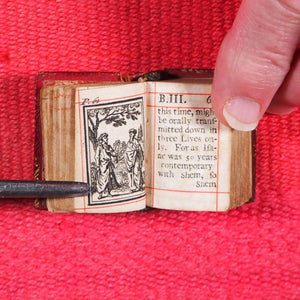 P. 61
B.III. 6
this time, migh
be orally trans-
mitted down in
three Lives on-
ly. For as Isa-
ac was 50 years
contemporary
with Shem, so
Shem